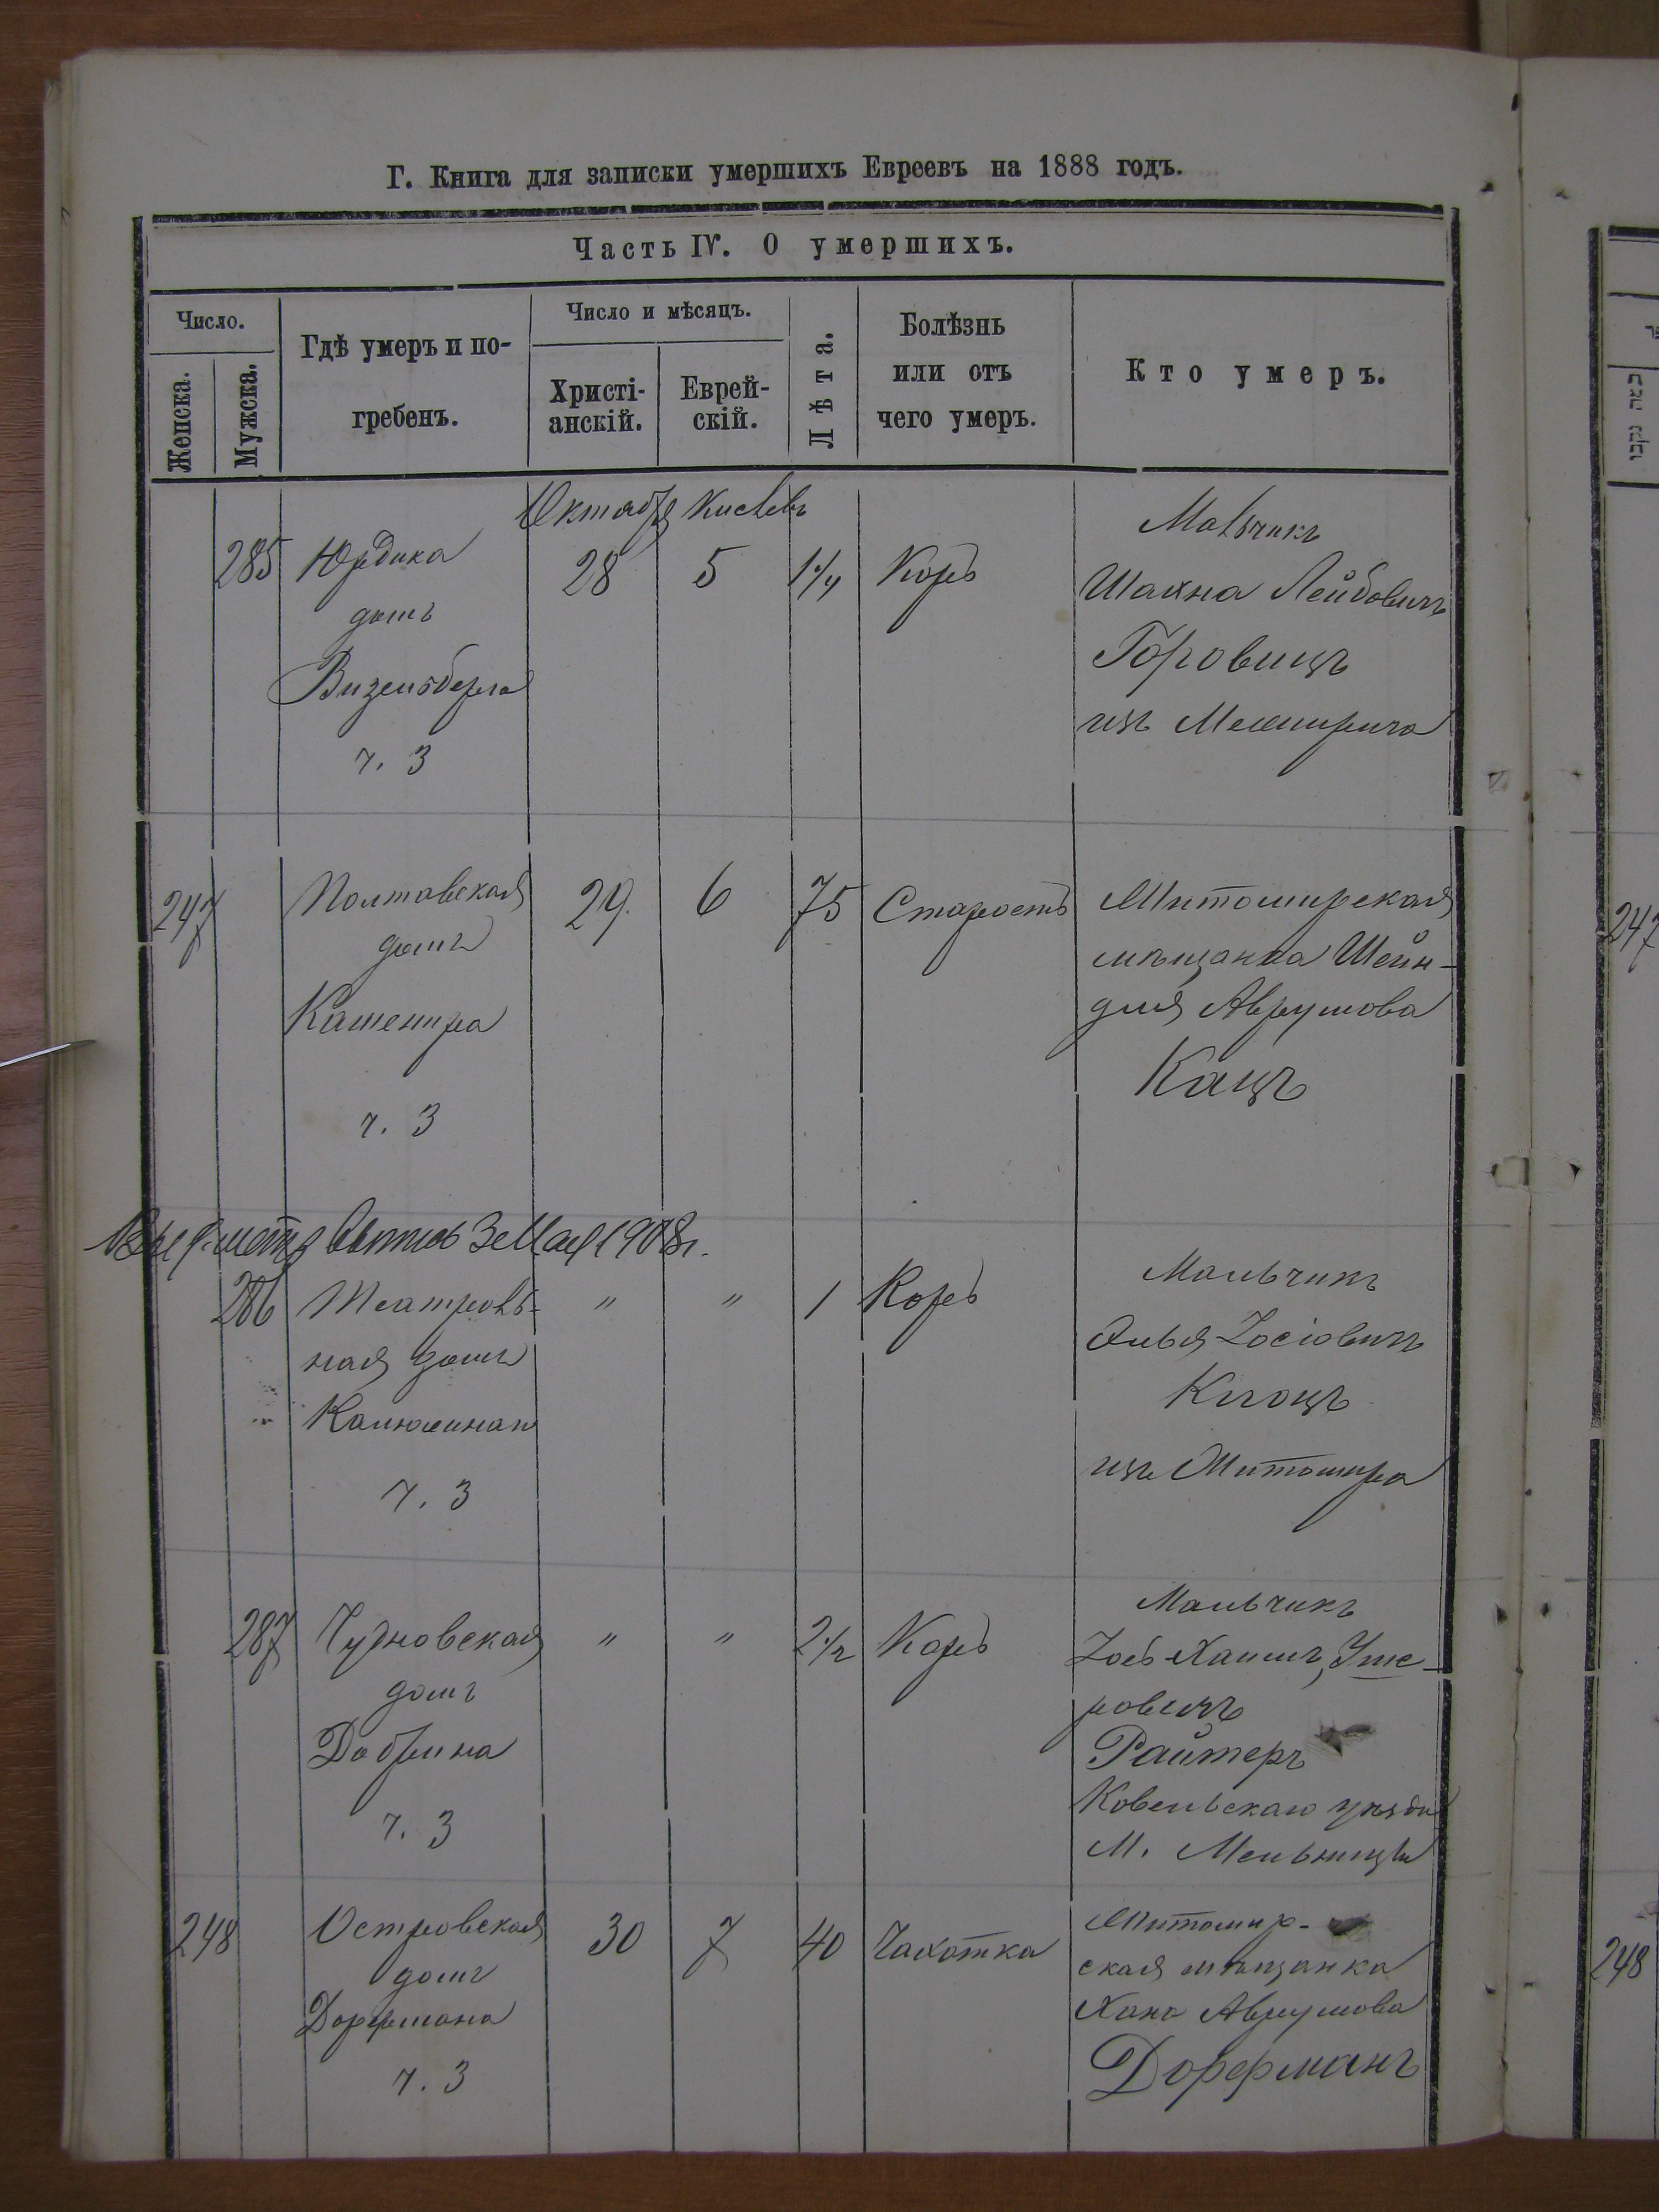 Г. Книга для записки умершихъ Евреевъ на 1888 годъ.
Часть IV. О умершихъ.
Число.
Женска.
Мужска.
Гдѣ умеръ и по-
гребенъ.
Число и мѣсяцъ.
Христі-
анскій.
Еврей-
скій.
Лѣта.
Болѣзнь
или отъ
чего умеръ.
Кто умеръ.
Октября Кислевъ
285
Юрдика
домъ
Визенберга
ч. 3
28
5
1 1/4
Корь
Мальчикъ
Шахна Лейбовичъ
Горовицъ
изъ Межирича
247
Полтавская
домъ
Каменира
ч. 3
29
6
75
Старость
Житомирская
мѣщанка Шейн-
для Аврумова
Кацъ
3 Мая 1908 г.
286
Театраль-
ная домъ
ч. 3
"
"
1
Корь
Мальчикъ
Элья Іосіовичъ
Клоцъ
изъ Житомира
287
Чудновская
домъ
Добрина
ч. 3
"
"
2 1/2
Корь
Мальчикъ
Іось-Хаимъ Уше-
ровичъ
Райтеръ
Ковельскаго уѣзда
М. Мельницы
248
Островская
домъ
Дорфмана
ч. 3
30
7
40
Чахотка
Житомир-
ская мѣщанка
Хана Аврумова
Дорфманъ
247
248